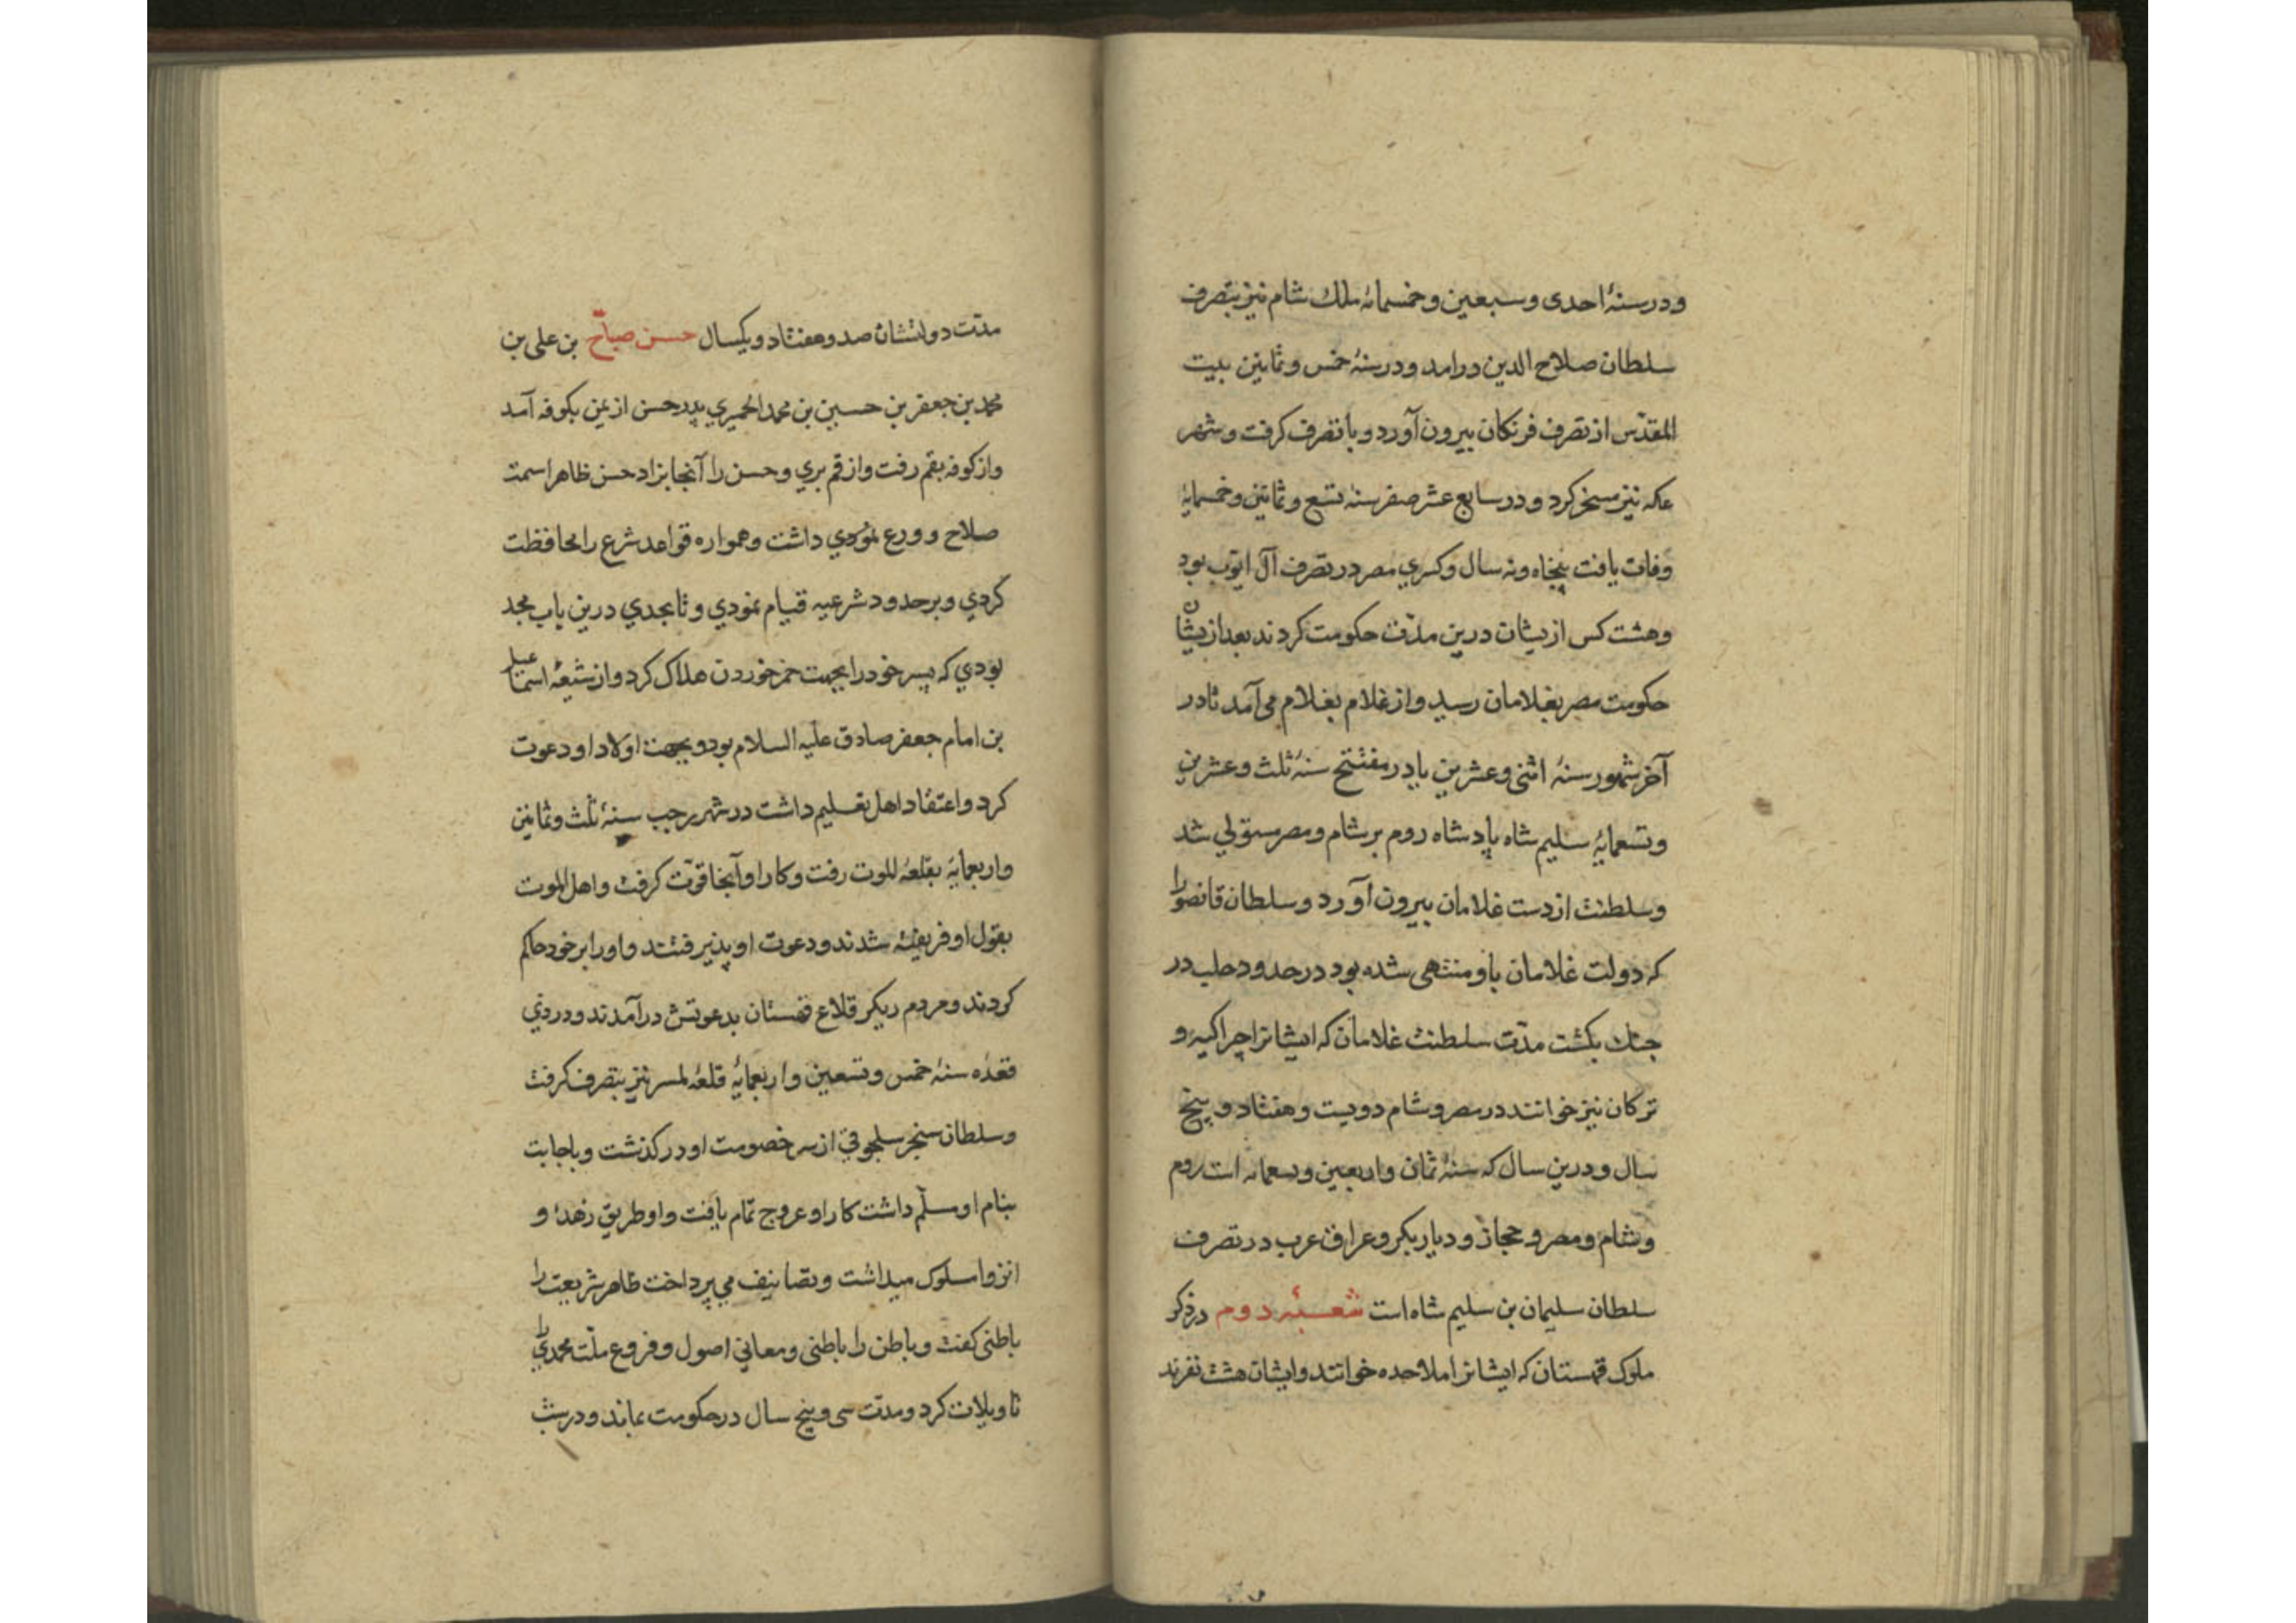 ودر سنهٔ احدی وسبعین وخمسمائه ملک شام نیز بتصرف
سلطان صلاح الدین درامد ودر سنهٔ خمس وثمانین بیت
المقدس از تصرف فرنکان بیرون آورد و با تصرف کرفت وشهر
عکه نیز مسخر کرد ودر سابع عشر صفر سنهٔ تسع وثمانین وخمسمایهٔ
وفات یافت پنجاه ونه سال وکسری مصر در تصرف آل ایوب بود
وهشت کس ازیشان درین مدت حکومت کردند بعد ازیشان
حکومت مصر بغلامان رسید واز غلام بغلام می آمد تا در
آخر شهور سنهٔ اثنی وعشرین یا در مفتتح سنهٔ ثلث وعشرین
وتسعمایهٔ سلیم شاه پادشاه روم بر شام ومصر مستولی شد
وسلطنت از دست غلامان بیرون آورد وسلطان قانصو را
که دولت غلامان باو منتهی شده بود در حدود حلب در
جنک بکشت مدت سلطنت غلامان که ایشانرا چراکسه و
ترکان نیز خوانند در مصر وشام دویست وهفتاد و پنج
سال ودرین سال که سنهٔ ثمان واربعین وتسعمائه است روم
وشام ومصر و حجاز و دیار بکر وعراق عرب در تصرف
سلطان سلیمان بن سلیم شاه است شعبهٔ دوم در ذکر
ملوک قهستان که ایشانرا ملاحده خوانند وایشان هشت نفرند
مدت دولتشان صد وهفتاد ویکسال حسن صباح بن علی بن
محمد بن جعفر بن حسین بن محمد الحمیری پدر حسن از یمن بکوفه آمد
واز کوفه بقم رفت واز قم بری وحسن را آنجا بزاد حسن ظاهرا سمت
صلاح وورع نمودی داشت وهمواره قواعد شرع را محافظت
کردی وبر حدود شرعیه قیام نمودی وتا بحدی درین باب مجد
بودی که پسر خود را بجهت خمر خوردن هلاک کرد واز شیعهٔ اسمعیل
بن امام جعفر صادق علیه السلام بود وبجهت اولاد او دعوت
کرد واعتقاد اهل تعلیم داشت در شهر رجب سنهٔ ثلث وثمانین
واربعمایهٔ بقلعهٔ الموت رفت وکار او آنجا قوت کرفت واهل الموت
بقول او فریفته شدند ودعوت او پذیرفتند واو را بر خود حاکم
کردند ومردم دیکر قلاع قهستان بدعوتش درآمدند ودر ذی
قعده سنهٔ خمس وتسعین واربعمایهٔ قلعهٔ لمسر نیز بتصرف کرفت
وسلطان سنجر سلجوقی از سر خصومت او در کذشت وباجابت
بنام او مسلم داشت کار او عروج تمام یافت واو طریق زهد و
انزوا سلوک میداشت وبتصانیف می پرداخت ظاهر شریعت را
باطنی کفت وباطن را باطنی ومعانی اصول وفروع ملت محمدی را
تاویلات کرد ومدت سی وپنج سال در حکومت بماند ودر شب